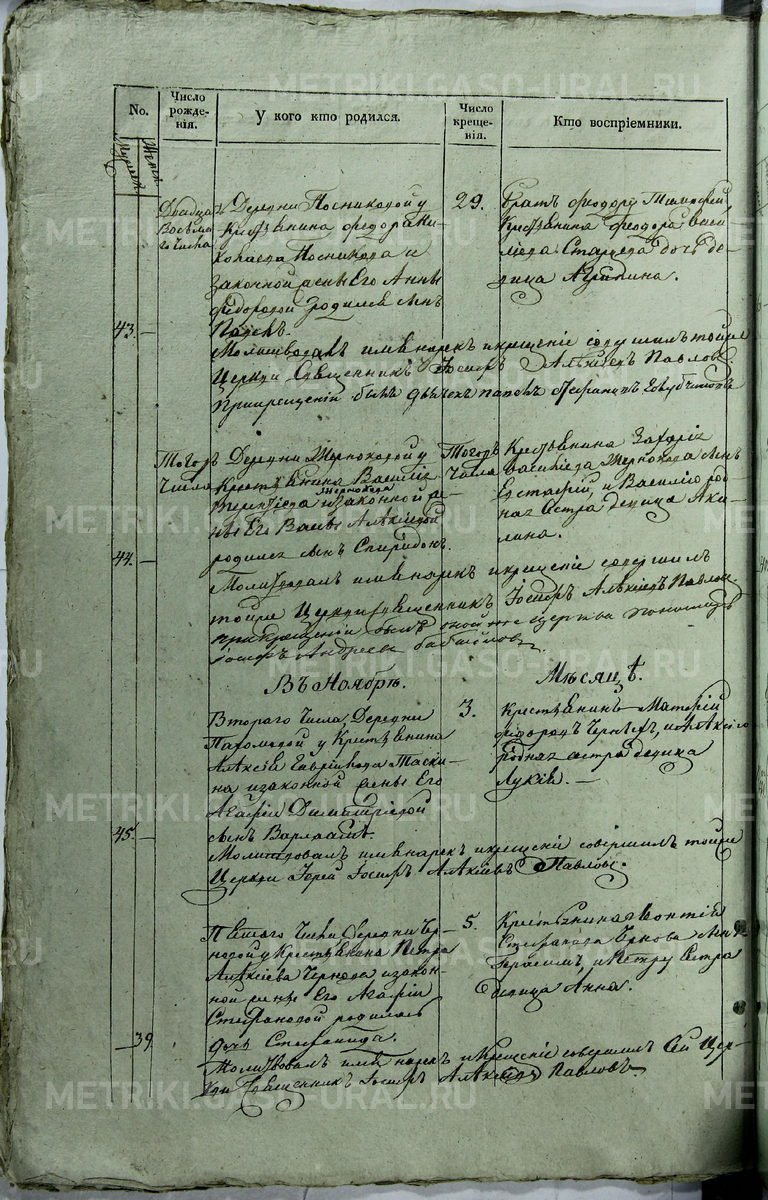 No.
Число рожде-
нія.
У кого кто родился.
Число
креще-
нія.
Кто воспріемники.
Двадцать
Восьма-
го числа
Деревни Посниковой у
Крестьянина Федора
Посникова и
законной жены Его Анны
Федоровой родился сынъ
Павелъ.
29.
братъ Федору Тимофей,
Крестьянина Федора Васи-
лиева Старцева дочь де-
вица Агрипина.
43. —
Молитвовалъ имя нарекъ и крещеніе совершилъ тойже
Церкви Священникъ Іосифъ Алѣксіевъ Павловъ
При крещеніи былъ дьячекъ
Тогожъ
Числа
Деревни Черноковой у
Крестьянина Василія
Чернокова
и законной же-
ны Его Алѣксіевой
родился сынъ Спиридонъ.
Тогожъ
числа
Крестьянина
Василиева Чернокова сынъ
Евстафій, и Василию род-
ная сестра девица Аку-
лина.
44. —
Молитвовалъ имя нарекъ и крещеніе совершилъ
тойже Церкви Священникъ Іосифъ Алѣксіевъ Павловъ.
При крещеніи былъ оной же церкви пономарь
Іосифъ Андреевъ
Въ Ноябрѣ.
Мѣсяцѣ.
Второго Числа, Деревни
Пахомовой у Крестьянина
Алѣксія Гавриилова Таски-
на и законной жены Его
Агафіи Димитріевой
сынъ Варлаамъ.
3.
Крестьянинъ Матфій
Федоровъ и Алѣксію
родная сестра девица
Лукія. —
45. —
Молитвовалъ имя нарекъ и крещеніе совершилъ тойже
Церкви Іерей Іосифъ Алѣксіевъ Павловъ.
Пятого Числа Деревни Чер-
новой у Крестьянина Петра
Алѣксіева Чернова и закон-
ной жены Его Агафіи
Стефановой родилась
дочь Стефанида.
5.
Крестьянина Леонтія
Стефанова Чернова сынъ
Герасимъ, и Петру Сестра
девица Анна.
— 39
Молитвовалъ имя нарекъ и Крещеніе совершилъ Сей Цер-
кви Священникъ Іосифъ Алѣксіевъ Павловъ
METRIKI.GASO-URAL.RU